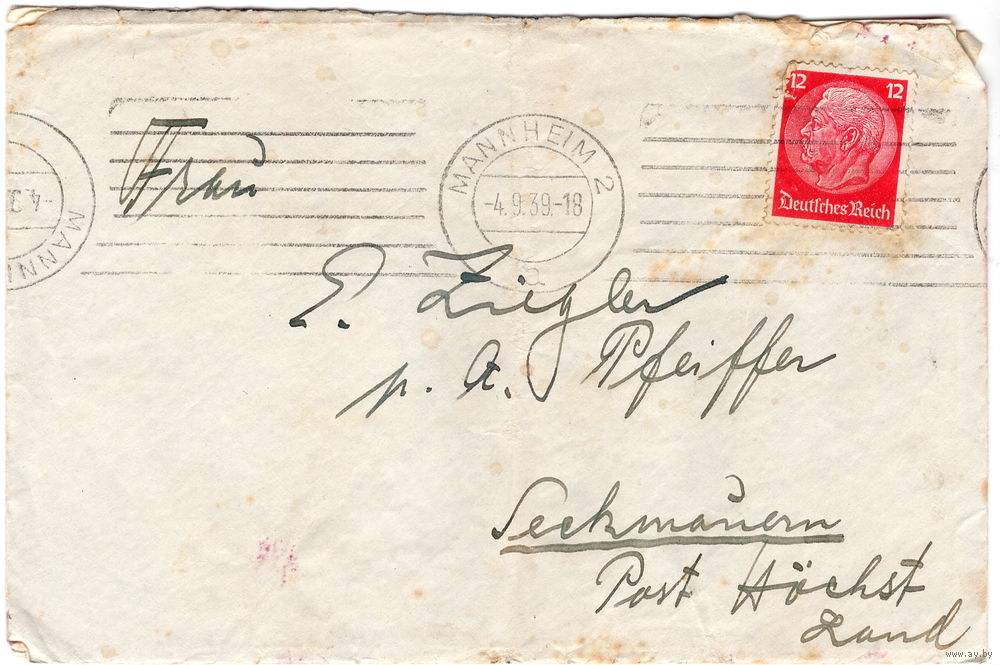 12 12
Deutsches Reich
MANNHEIM 2
-4.9.39.-18
a
MANNH
Frau
E. Ziegler
p. A. Pfeiffer
Seckmauern
Post Höchst
Land
www.ay.by